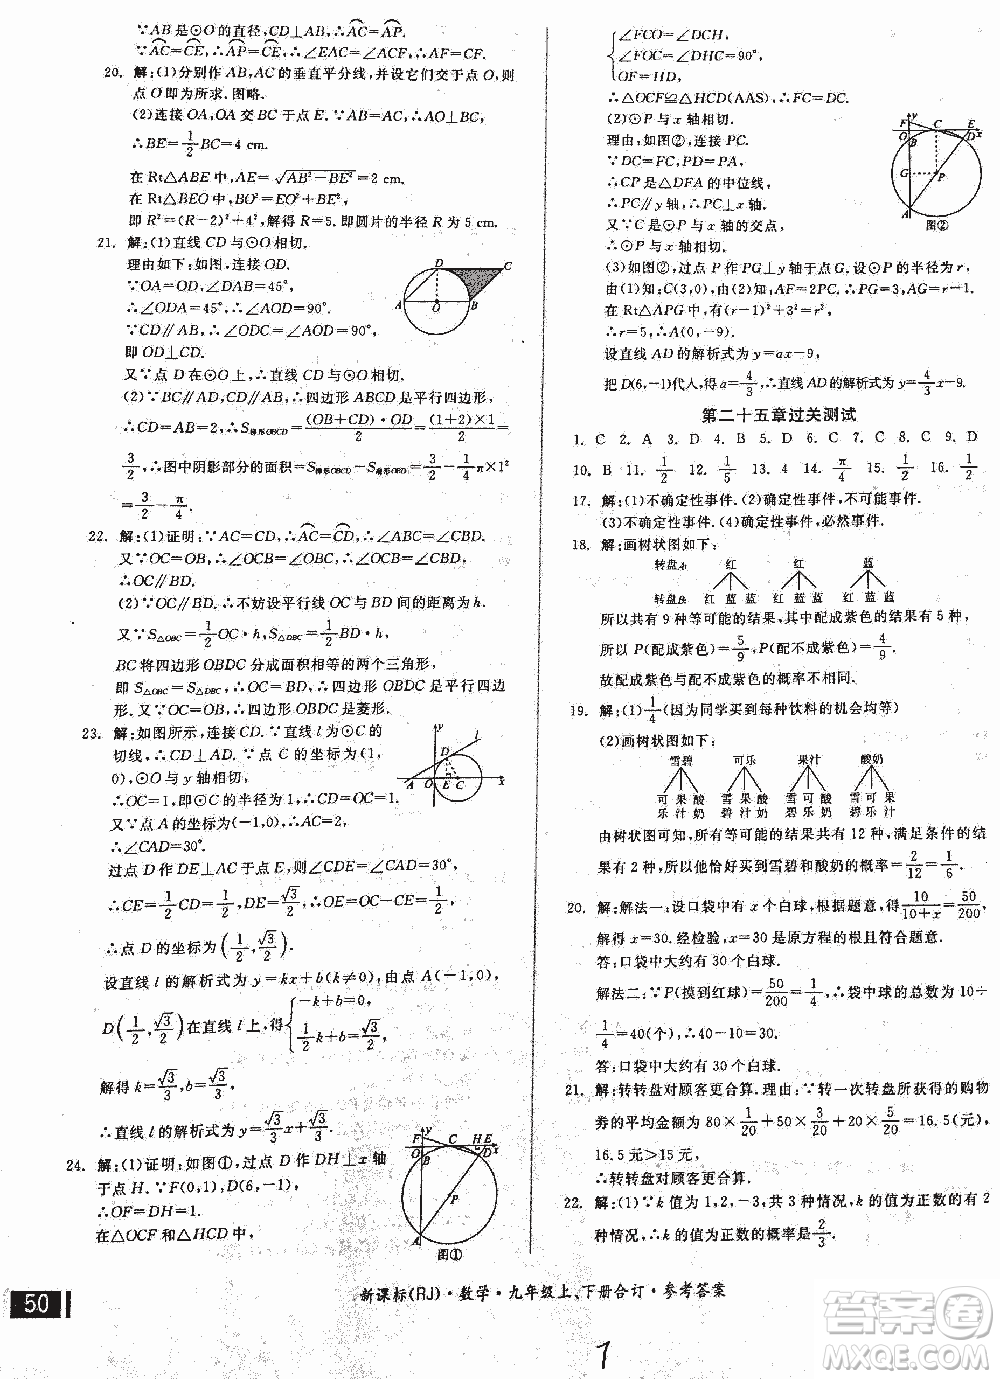 ∵AB是⊙O的直径,CD⊥AB,∴AC=AP.
∵AC=CE,∴AP=CE,∴∠EAC=∠ACF,∴AF=CF.
20. 解:(1)分别作AB,AC的垂直平分线,并设它们交于点O,则
点O即为所求.图略.
(2)连接OA,OA交BC于点E.∵AB=AC,∴AO⊥BC,
∴BE=1/2BC=4 cm.
在Rt△ABE中,AE=√(AB²−BE²)=2 cm.
在Rt△BEO中,BO²=BE²+OE²,
即R²=(R−2)²+4²,解得R=5.即圆片的半径R为5 cm.
21. 解:(1)直线CD与⊙O相切.
理由如下:如图,连接OD.
∵OA=OD,∠DAB=45°,
∴∠ODA=45°,∴∠AOD=90°.
∵CD∥AB,∴∠ODC=∠AOD=90°,
即OD⊥CD.
又∵点D在⊙O上,∴直线CD与⊙O相切.
(2)∵BC∥AD,CD∥AB,∴四边形ABCD是平行四边形,
∴CD=AB=2,∴S梯形OBCD=(OB+CD)·OD/2=(1+2)×1/2=
3/2,∴图中阴影部分的面积=S梯形OBCD−S扇形OBD=3/2−1/4×π×1²
=3/2−π/4.
22. 解:(1)证明:∵AC=CD,∴AC=CD,∴∠ABC=∠CBD.
又∵OC=OB,∴∠OCB=∠OBC,∴∠OCB=∠CBD,
∴OC∥BD.
(2)∵OC∥BD,∴不妨设平行线OC与BD间的距离为h.
又∵S△OBC=1/2OC·h,S△DBC=1/2BD·h,
BC将四边形OBDC分成面积相等的两个三角形,
即S△OBC=S△DBC,∴OC=BD,∴四边形OBDC是平行四边
形.又∵OC=OB,∴四边形OBDC是菱形.
23. 解:如图所示,连接CD.∵直线l为⊙C的
切线,∴CD⊥AD.∵点C的坐标为(1,
0),⊙C与y轴相切,
∴OC=1,即⊙C的半径为1,∴CD=1.
又∵点A的坐标为(−1,0),∴AC=2,
∴∠CAD=30°.
过点D作DE⊥AC于点E,则∠CDE=∠CAD=30°,
∴CE=1/2CD=1/2,DE=√3/2,∴OE=OC−CE=1/2,
∴点D的坐标为(1/2,√3/2).
设直线l的解析式为y=kx+b(k≠0),由点A(−1,0),
D(1/2,√3/2)在直线l上,得{−k+b=0, 1/2k+b=√3/2,
解得k=√3/3,b=√3/3,
∴直线l的解析式为y=√3/3x+√3/3.
24. 解:(1)证明:如图①,过点D作DH⊥x轴
于点H.∵F(0,1),D(6,−1),
∴OF=DH=1.
在△OCF和△HCD中,
图①
{∠FCO=∠DCH,
∠FOC=∠DHC=90°,
OF=HD,
∴△OCF≌△HCD(AAS),∴FC=DC.
(2)⊙P与x轴相切.
理由:如图②,连接PC.
∵DC=FC,PD=PA,
∴CP是△DFA的中位线,
∴PC∥y轴,∴PC⊥x轴.
又∵C是⊙P与x轴的交点,
∴⊙P与x轴相切.
图②
(3)如图②,过点P作PG⊥y轴于点G.设⊙P的半径为r,
由(1)知,C(3,0),由(2)知,AF=2PC.∴PG=3,AG=r−1.
在Rt△APG中,有(r−1)²+3²=r²,
∴r=5,∴A(0,−9).
设直线AD的解析式为y=ax−9,
把D(6,−1)代入,得a=4/3,∴直线AD的解析式为y=4/3x−9.
第二十五章过关测试
1. C 2. A 3. D 4. D 5. B 6. C 7. C 8. C 9. D
10. B 11. 1/2 12. 1/5 13. 12 14. π/4 15. 1/2 16. 1/2
17. 解:(1)不确定性事件.(2)确定性事件,不可能事件.
(3)不确定性事件.(4)确定性事件,必然事件.
18. 解:画树状图如下:
转盘A 红 红 蓝
转盘B 红 蓝 蓝 红 蓝 蓝 红 蓝 蓝
所以共有9种等可能的结果,其中配成紫色的结果有5种,
所以P(配成紫色)=5/9,P(配不成紫色)=4/9,
故配成紫色与配不成紫色的概率不相等.
19. 解:(1)1/4(因为同学买到每种饮料的机会均等)
(2)画树状图如下:
雪碧 可乐 果汁 酸奶
可乐 果汁 酸奶 雪碧 果汁 酸奶 雪碧 可乐 酸奶 雪碧 可乐 果汁
由树状图可知,所有等可能的结果共有12种,满足条件的结
果有2种,所以他恰好买到雪碧和酸奶的概率=2/12=1/6.
20. 解:解法一:设口袋中有x个白球,根据题意,得10/(10+x)=50/200,
解得x=30.经检验,x=30是原方程的根且符合题意.
答:口袋中大约有30个白球.
解法二:∵P(摸到红球)=50/200=1/4,∴袋中球的总数为10÷
1/4=40(个),∴40−10=30(个).
答:口袋中大约有30个白球.
21. 解:转转盘对顾客更合算.理由:∵转一次转盘所获得的购物
券的平均金额为80×1/20+50×3/20+20×5/20=16.5(元),
16.5元>15元,
∴转转盘对顾客更合算.
22. 解:(1)∵k值为1,2,−3,共3种情况,k的值为正数的有2
种情况,∴k的值为正数的概率为2/3.
50 新课标(RJ)·数学·九年级上、下册合订·参考答案
7
答案圈
MXQE.COM